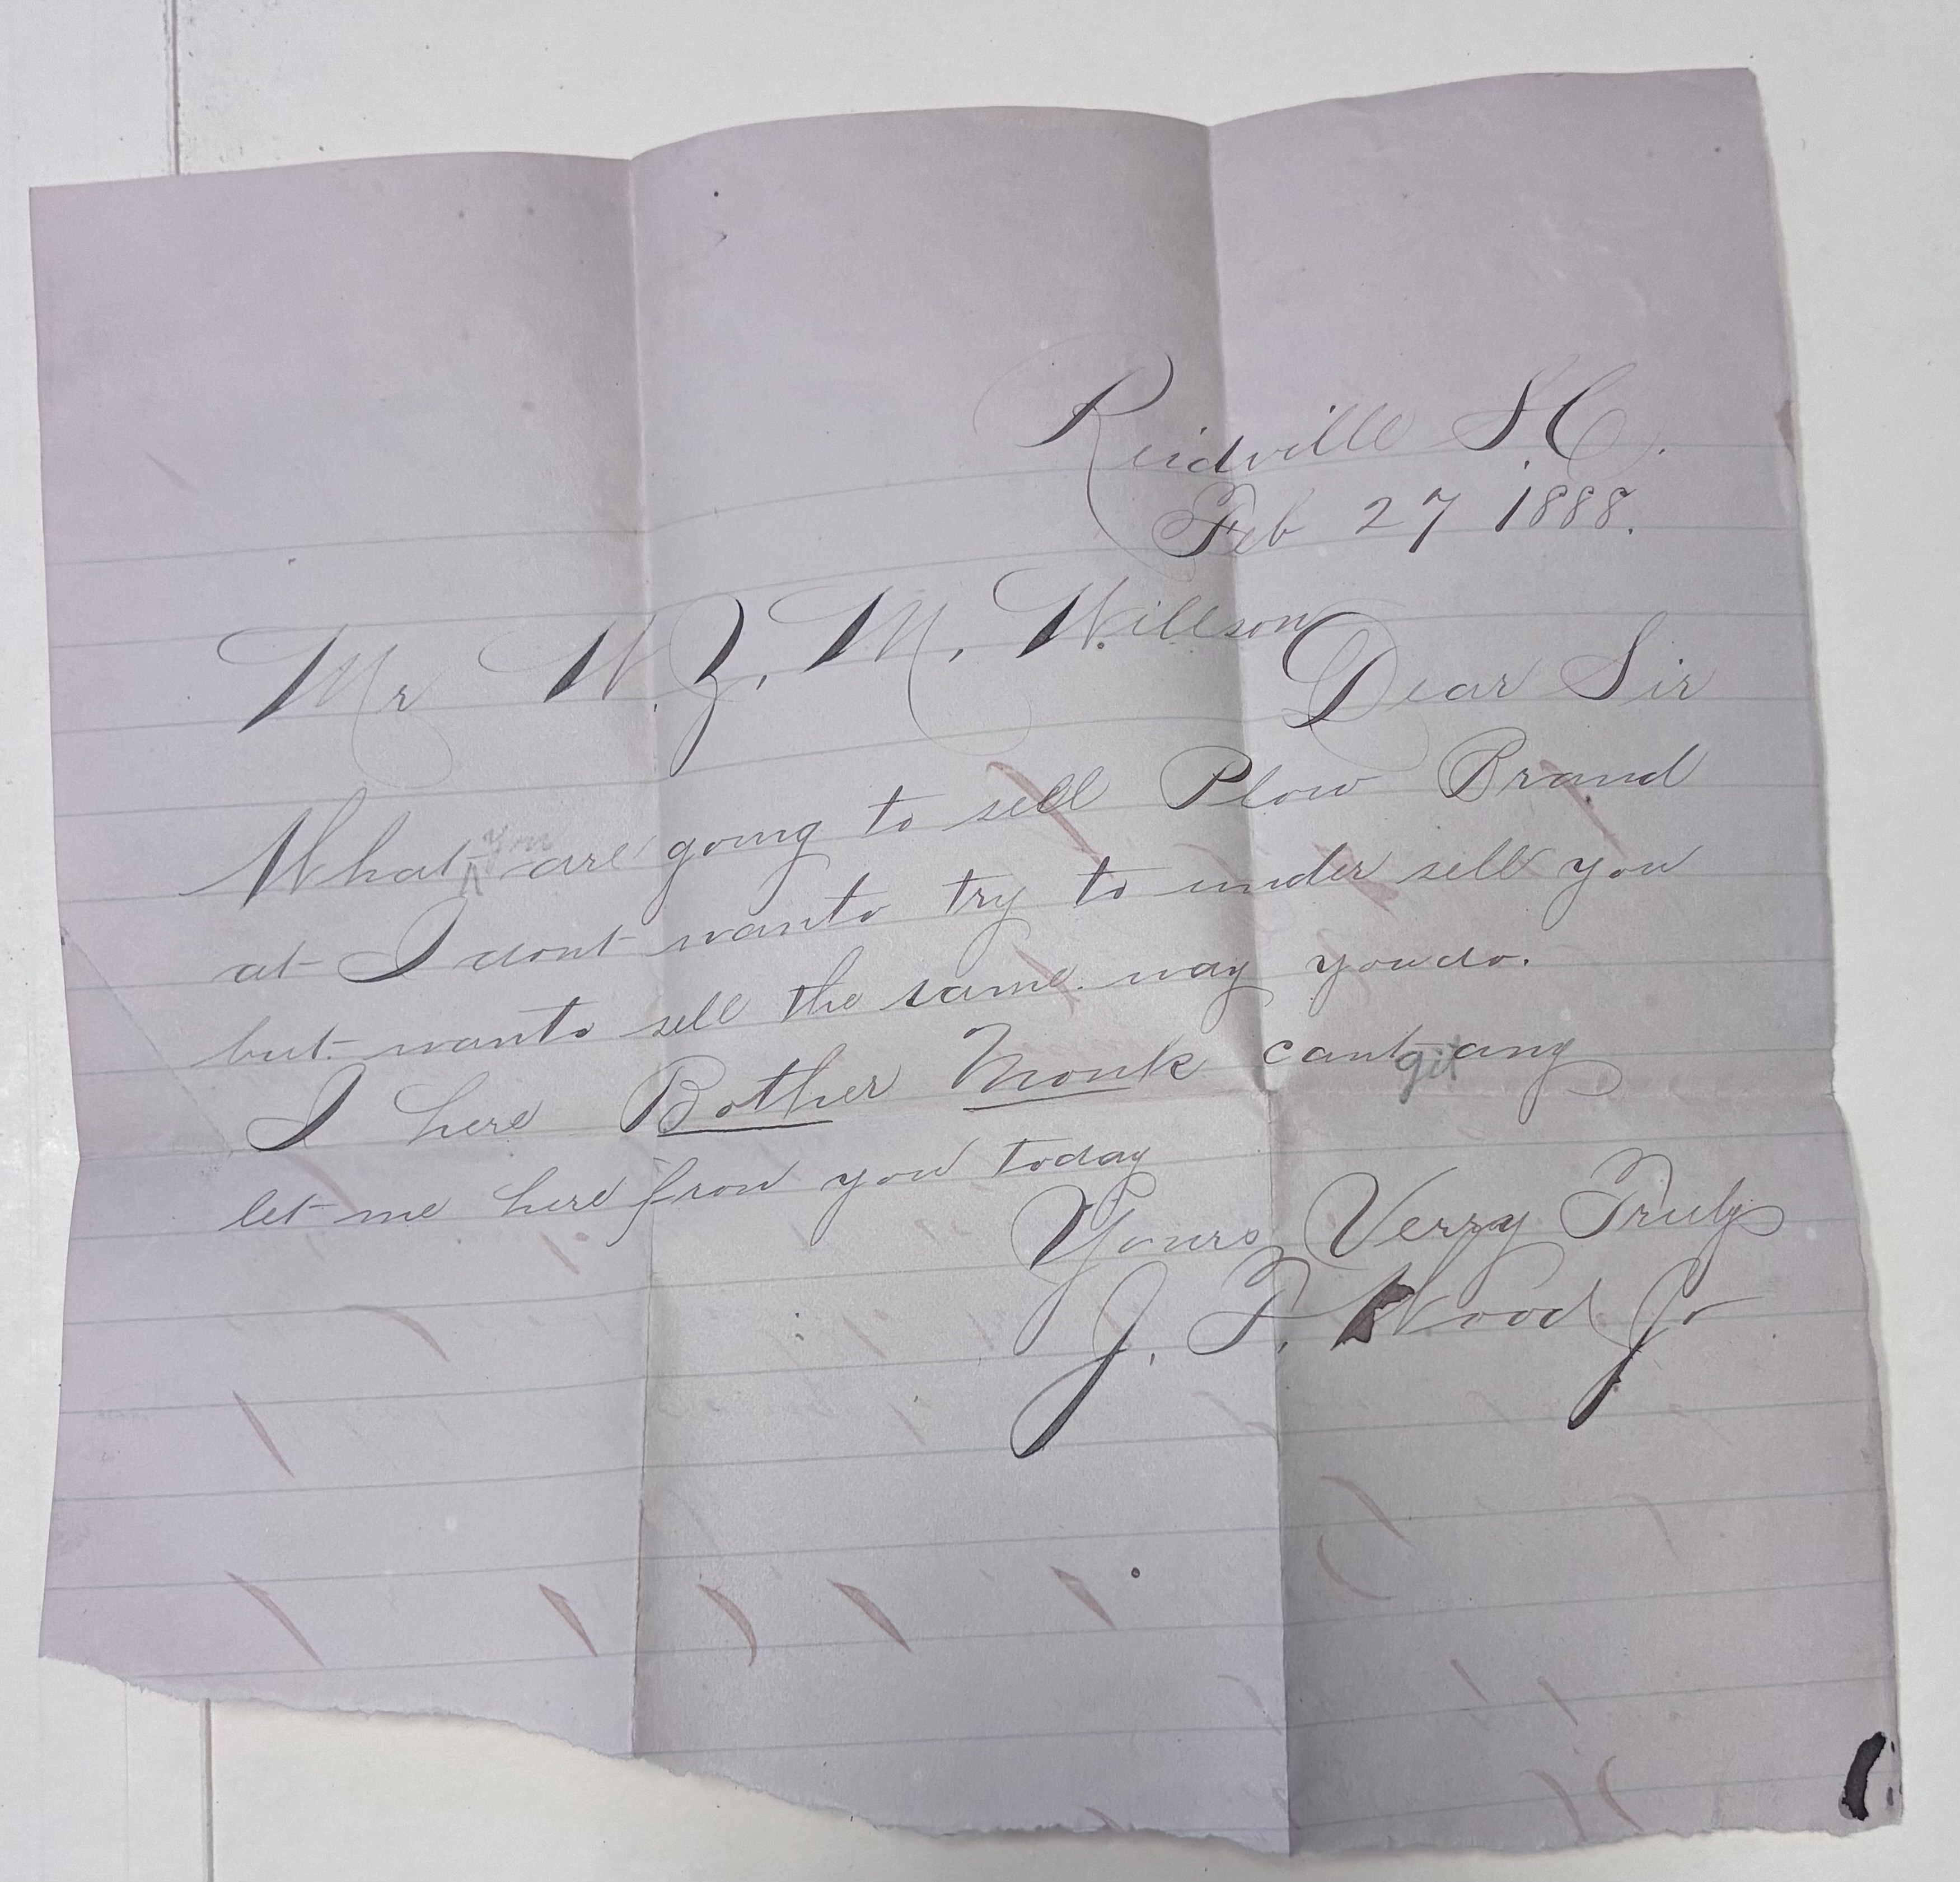 Reidville S.C.
Feb 27 1888.
Mr W.Z.M. Willson
Dear Sir
What you are going to sell Plow Brand
at I dont wanto try to under sell you
but wanto sell the same way you do.
I here Bother Monk cant git any
let me here from you today
Yours Verry Truly
J. T. Wood Jr